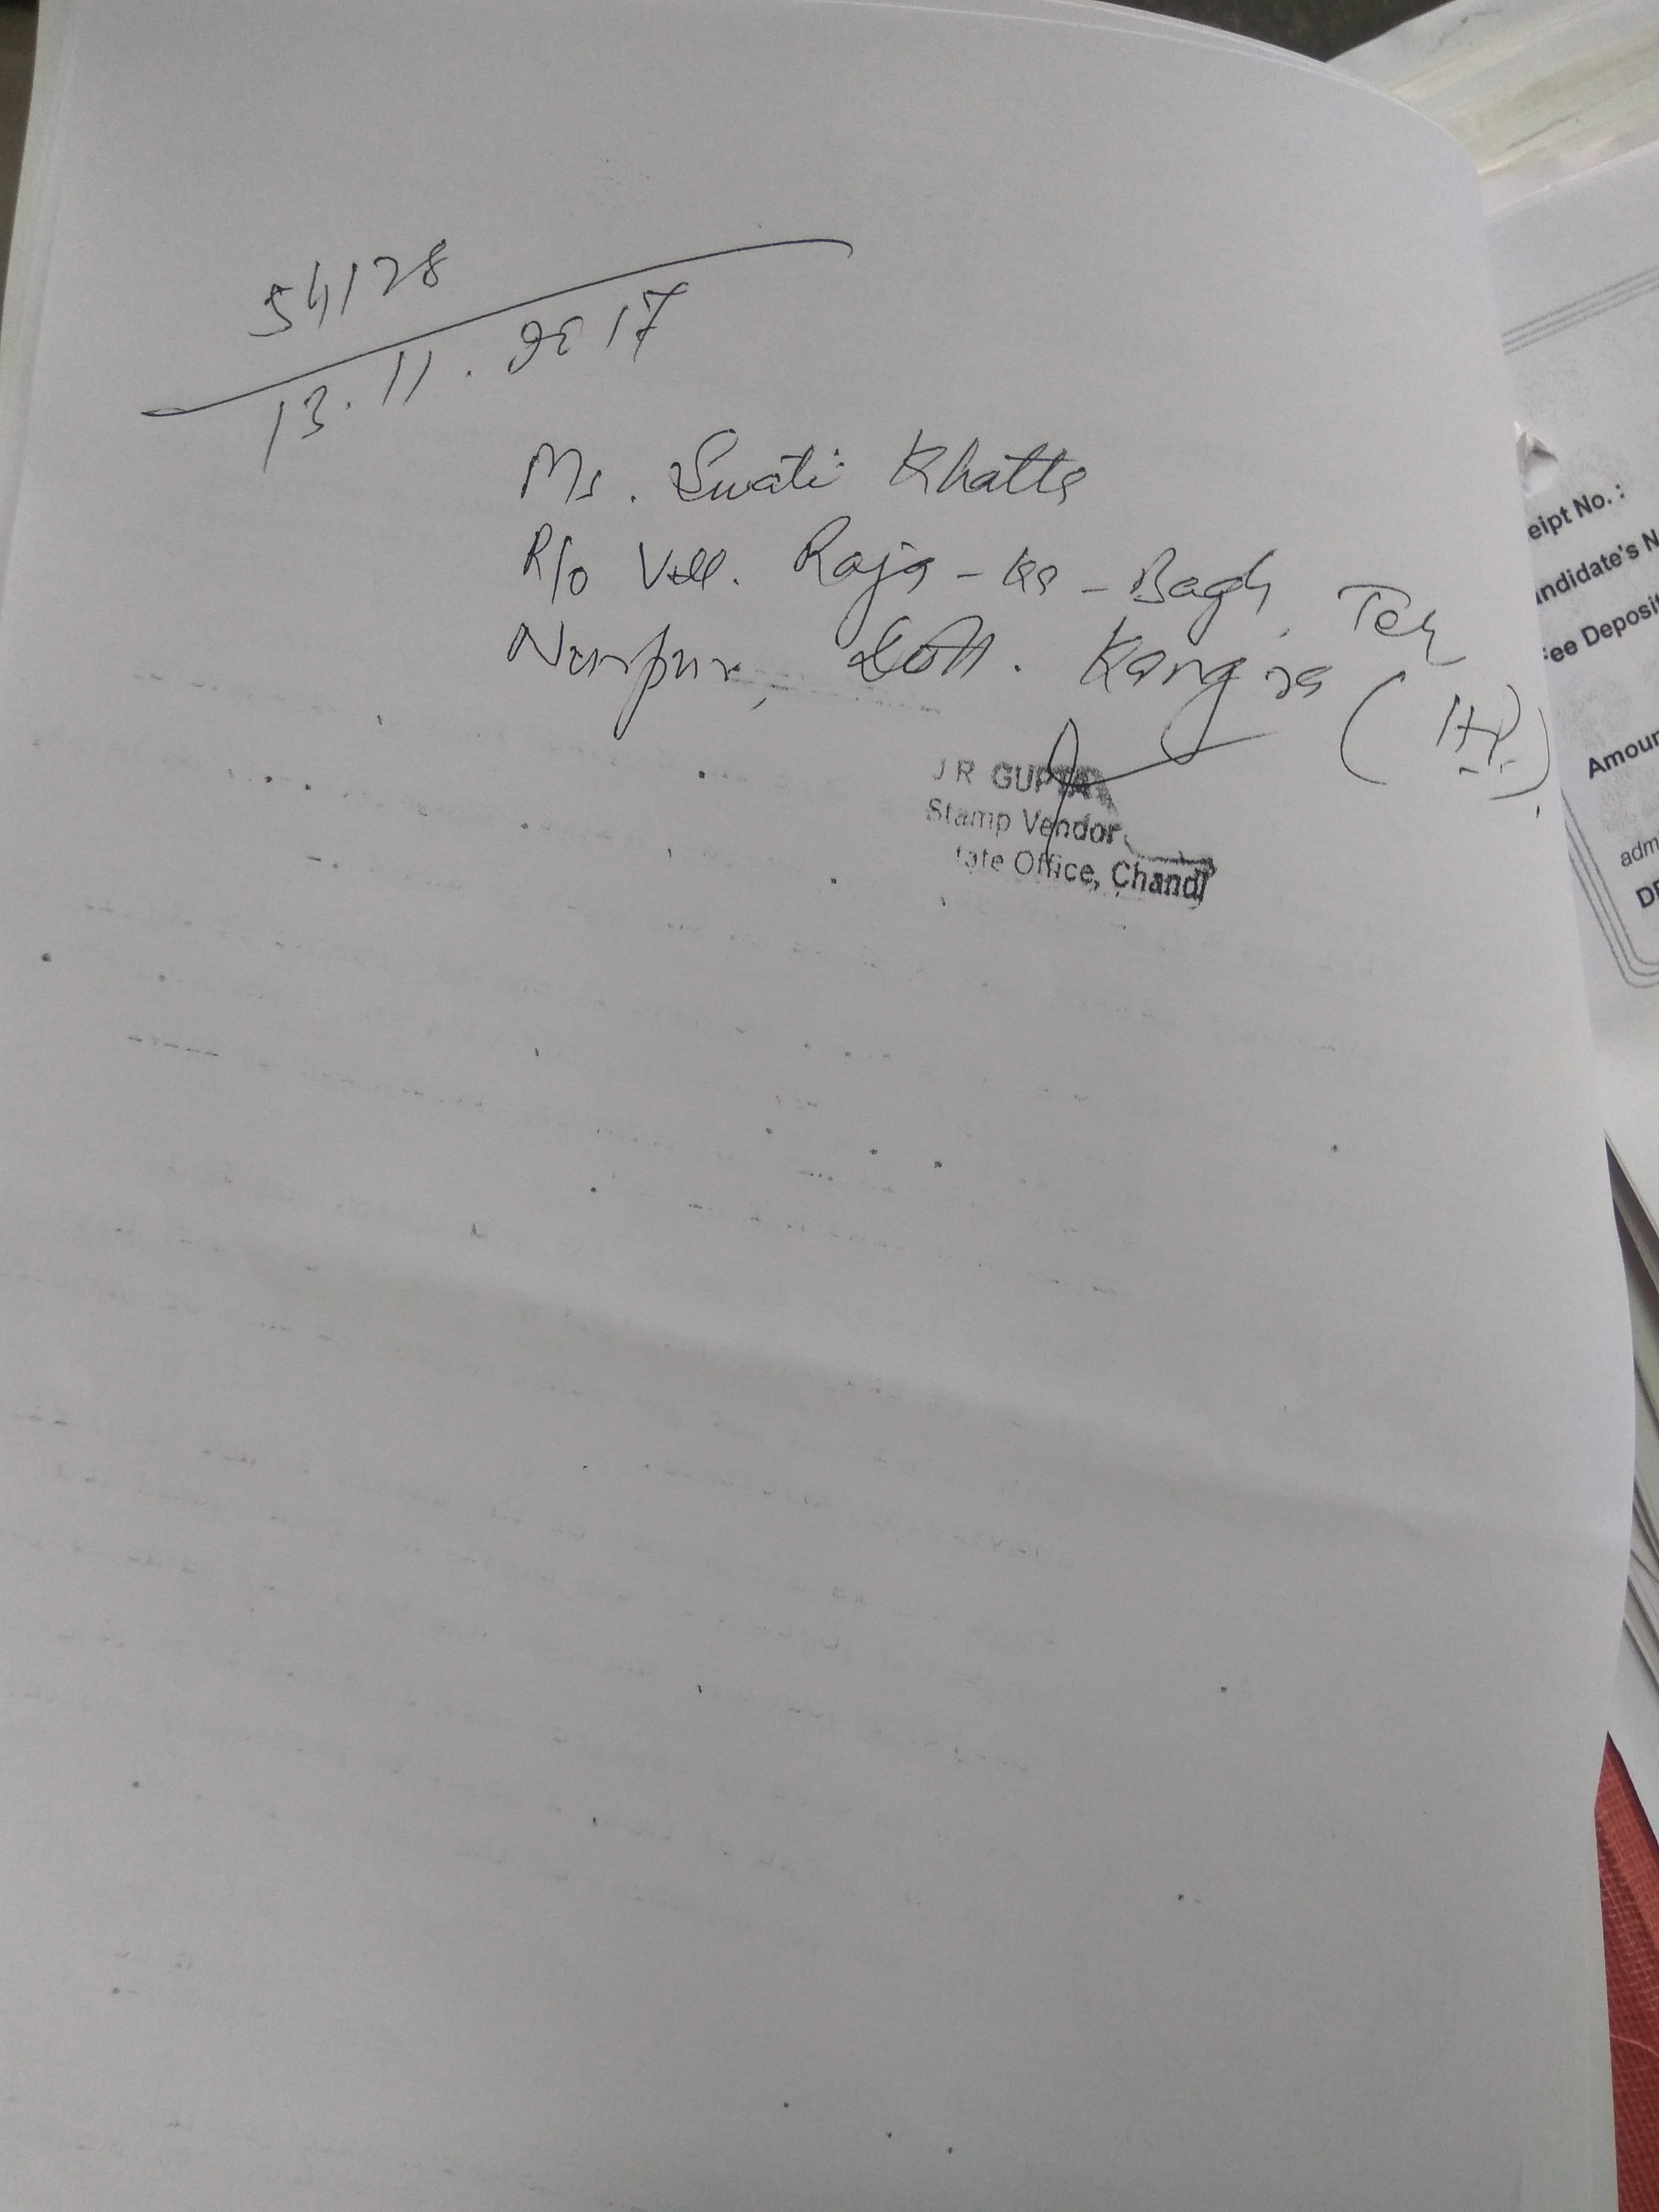 54128
13.11.2017
Ms. Swati Khatta
R/o Vill. Raja-ka-Bagh, Teh
Nurpur, Distt. Kangra (H.P.).
J R GUPTA
Stamp Vendor
tate Office, Chandi
eipt No. :
andidate's N
Fee Deposit
Amoun
adm